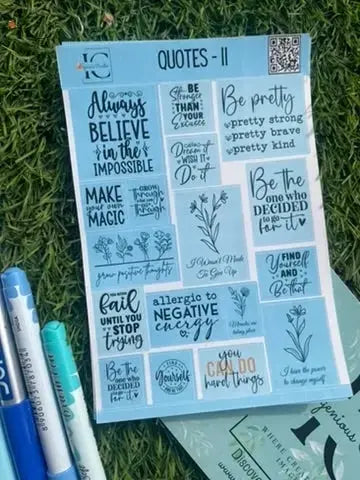 IC
QUOTES - II
Always
BELIEVE
in the
IMPOSSIBLE
BE
Stronger
THAN
YOUR
Excuses
Be pretty
pretty strong
pretty brave
pretty kind
Dream it
WISH IT
Do it
MAKE
your own
MAGIC
GROW
Through
what you
Through
Be the
one who
DECIDED
to go
for it
grow positive thoughts
I Wasn't Made
To Give Up
FIND
Yourself
AND
Be that
fail
UNTIL YOU
STOP
trying
allergic to
NEGATIVE
energy
I have the power
to change myself
Be the
ONE WHO
DECIDED
for it
Yourself
you
CAN DO
hard things
genious
WHERE CREAT
Discove